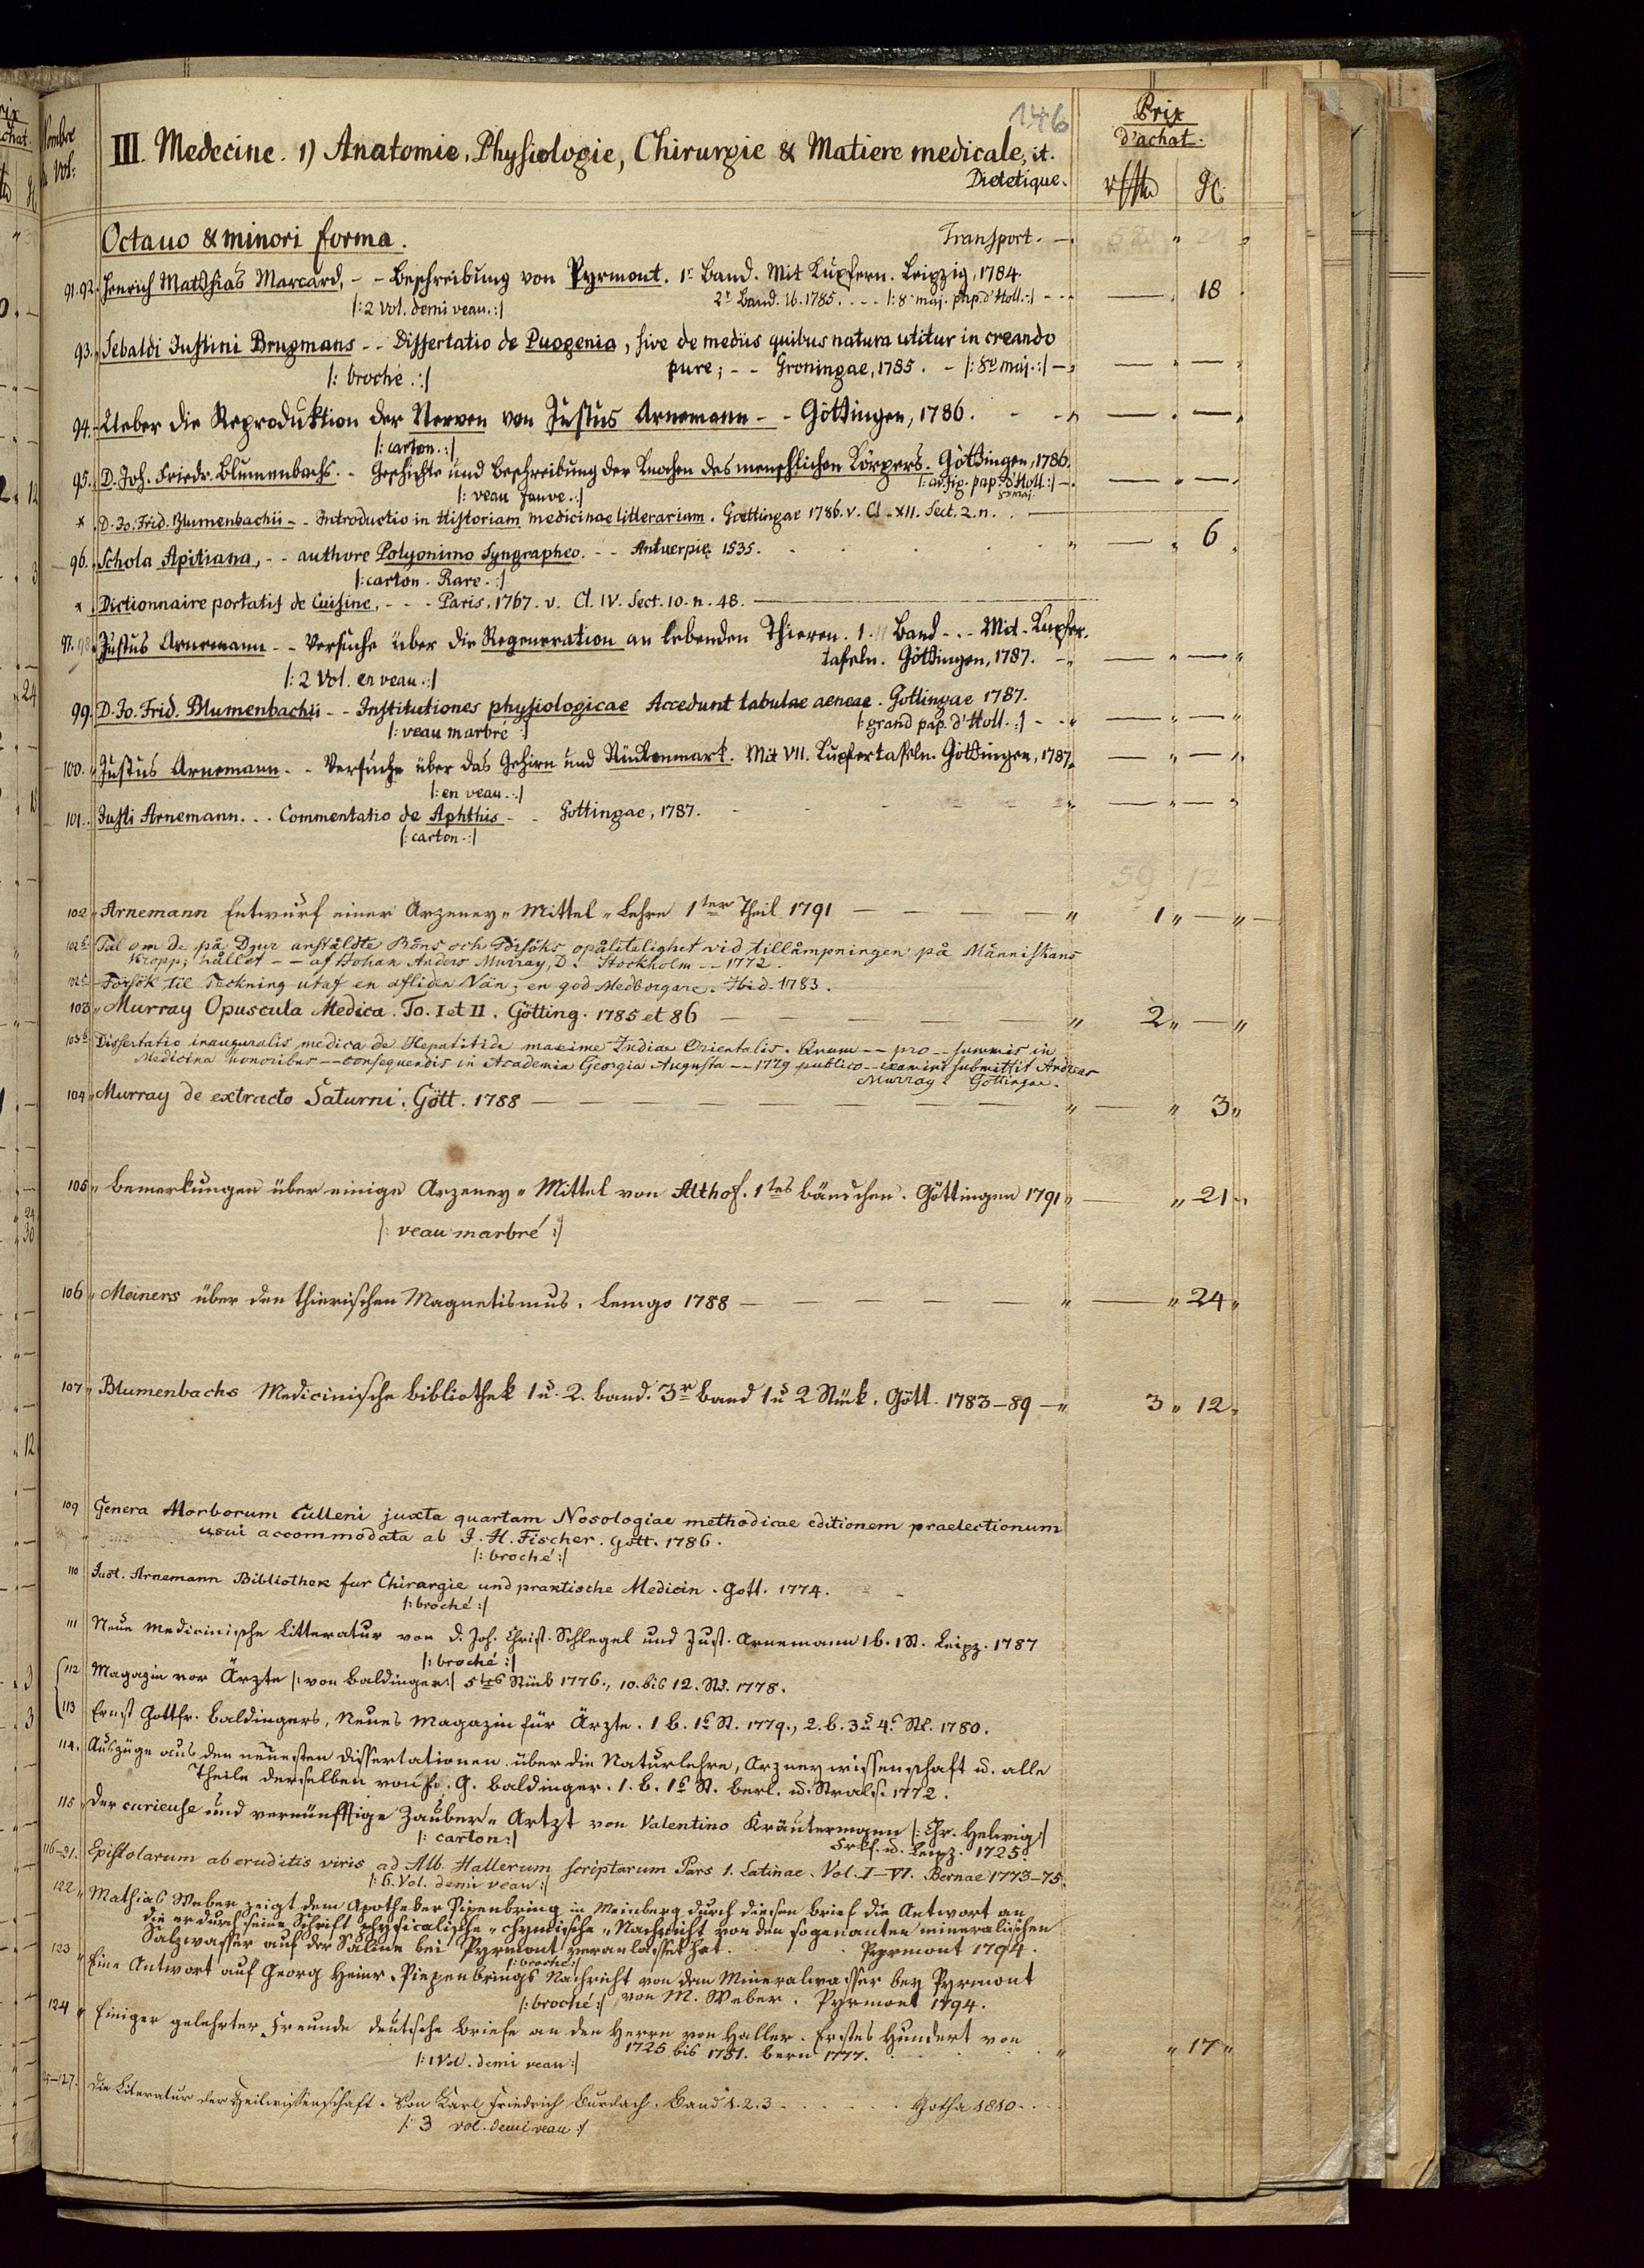 146
Nombre
Vol:
III. Medecine. 1) Anatomie, Physiologie, Chirurgie & Matiere medicale, it.
Dietetique.
Prix
d'achat.
Octauo & minori forma.
Transport.
91.92. Henrich Matthias Marcard, - - Beschreibung von Pyrmont. 1r Band. Mit Kupfern. Leipzig, 1784.
2r Band. ib. 1785. - - |: 8o maj. pap. d'Holl. :| - - — 18
|: 2 Vol. demi veau. :|
93. Sebaldi Justini Brugmans - - Dissertatio de Puogenia, sive de mediis quibus natura utitur in creando
pure; - - Groningae, 1785. - |: 8o maj. :| - — " —
|: broché. :|
94. Ueber die Reproduktion der Nerven von Justus Arnemann - - Göttingen, 1786. - - — " —
|: carton. :|
95. D. Joh. Friedr. Blumenbachs. - Geschichte und Beschreibung der Knochen des menschlichen Körpers. Göttingen, 1786.
|: av. fig. pap. d'Holl. :| - — " —
8o maj.
|: veau fauve. :|
* D. Jo. Frid. Blumenbachii - - Introductio in Historiam medicinae litterariam. Goettingae 1786. v. Cl. XII. Sect. 2. n. —
96. Schola Apitiana, - - authore Polyonimo Syngrapheo. - - Antuerpię 1535. — " 6
|: carton. Rare. :|
* Dictionnaire portatif de Cuisine, - - - Paris, 1767. v. Cl. IV. Sect. 10. n. 48. —
97.98. Justus Arnemann - - Versuche über die Regeneration an lebenden Thieren. 1. Band - - - Mit Kupfer.
tafeln. Göttingen, 1787. - — " —
|: 2 Vol. en veau. :|
99. D. Jo. Frid. Blumenbachii - - Institutiones physiologicae Accedunt tabulae aeneae. Gottingae 1787.
|: grand pap. d'Holl. :| - - — " —
|: veau marbré :|
100. Justus Arnemann. - - Versuche über das Gehirn und Rückenmark. Mit VII. Kupfertafeln. Göttingen, 1787. — " —
|: en veau. :|
101. Justi Arnemann. - - Commentatio de Aphthis - - Gottingae, 1787. — " —
|: carton. :|
59 12
102 " Arnemann Entwurf einer Arzeney " Mittel " Lehre 1ter Theil 1791 — — — — " 1 " — "
102b Tal om de på Djur anstäldte Röns och Försöks opålitelighet vid tillämpningen på Människans
Kropp; hållet - - af Johan Anders Murray, D. Stockholm - - 1772.
102c Försök til Teckning utaf en afliden Vän; en god Medborgare. Ibid. 1783.
103 " Murray Opuscula Medica. To. I et II. Götting. 1785 et 86 — — — " 2 " — "
103b Dissertatio inauguralis medica de Hepatitide maxime Indiae Orientalis. Quam - - pro - - summis in
Medicina honoribus - - consequendis in Academia Georgia Augusta - - 1779 publico - - examini submittit Andreas
Murray. Göttingae.
104 " Murray de extracto Saturni. Gött. 1788 — — — — " — " 3 "
105 " Bemerkungen über einige Arzeney " Mittel von Althof. 1tes Bändchen. Göttingen 1791 " — " 21 "
|: veau marbré :|
106 " Meiners über den thierischen Magnetismus. Lemgo 1788 — — — " — " 24 "
107 " Blumenbachs Medicinische Bibliothek 1 u. 2. Band. 3r Band 1 u 2 Stück. Gött. 1783-89 — " 3 " 12 "
109 Genera Morborum Culleni juxta quartam Nosologiae methodicae editionem praelectionum
usui accommodata ab J. H. Fischer. Gött. 1786.
|: broché :|
110 Just. Arnemann Bibliothek fur Chirurgie und praktische Medicin. Gott. 1774.
|: broché :|
111 Neue Medicinische Litteratur von D. Joh. Christ. Schlegel und Just. Arnemann 1 B. 1 St. Leipz. 1787
|: broché :|
112 Magazin vor Ärzte |: von Baldinger :| 5tes Stück 1776., 10. bis 12. St. 1778.
113 Ernst Gottfr. Baldingers, Neues Magazin für Ärzte. 1 B. 1s St. 1779., 2. B. 3 u 4s St. 1780.
114. Auszüge aus den neuesten Dissertationen über die Naturlehre, Arzneywissenschaft u. alle
Theile derselben von E. G. Baldinger. 1. B. 1s St. Berl. u. Strals. 1772.
115 " Der curieuse und vernünfftige Zauber " Artzt von Valentino Kräutermann |: Chr. Helwig :|
Frkf. u. Leipz. 1725.
|: carton :|
116-21. Epistolarum ab eruditis viris ad Alb. Hallerum scriptarum Pars 1. Latinae. Vol. I-VI. Bernae 1773-75.
|: 6. Vol. demi veau :|
122 " Mathias Weber zeigt dem Apotheker Pipenbring in Meinberg durch diesen Brief die Antwort an
die er durch seine Schrift physicalische " chymische " Nachricht von den sogenanten mineralischen
Salzwasser auf der Saline bei Pyrmont veranlasset hat. Pyrmont 1794.
|: broché :|
123 " Eine Antwort auf Georg Heinr. Piepenbrings Nachricht von dem Mineralwasser bey Pyrmont
von M. Weber. Pyrmont 1794.
|: broché :|
124 " Einiger gelehrter Freunde deutsche Briefe an den Herrn von Haller. Erstes Hundert von
1725 bis 1751. Bern 1777. " " 17 "
|: 1 Vol. demi veau :|
25-127. Die Literatur der Heilwissenschaft. Von Karl Friedrich Burdach. Band 1. 2. 3 - - - Gotha 1810.
|: 3 vol. demi veau :|